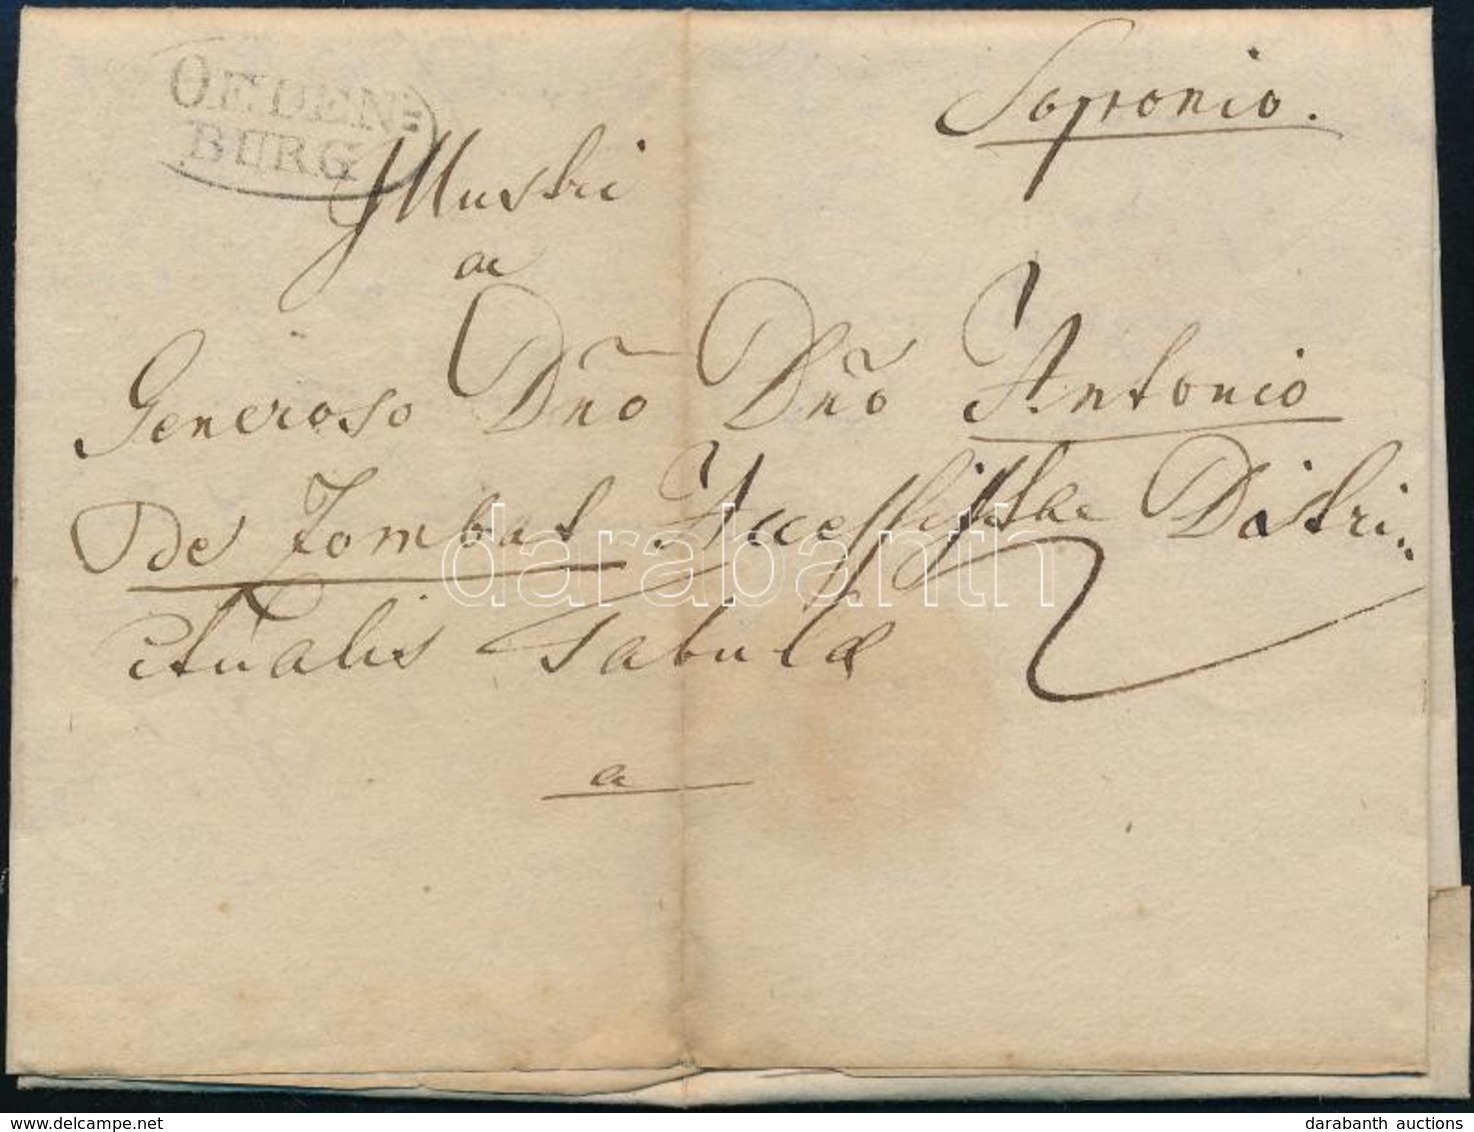 OEDEN=
BURG
Sopronio.
Illustri
ac
Generoso Dño Dño Antonio
De Zombat Accessistae Distri„
ctualis Tabulæ
2
a
darabanth
darabanth auctions